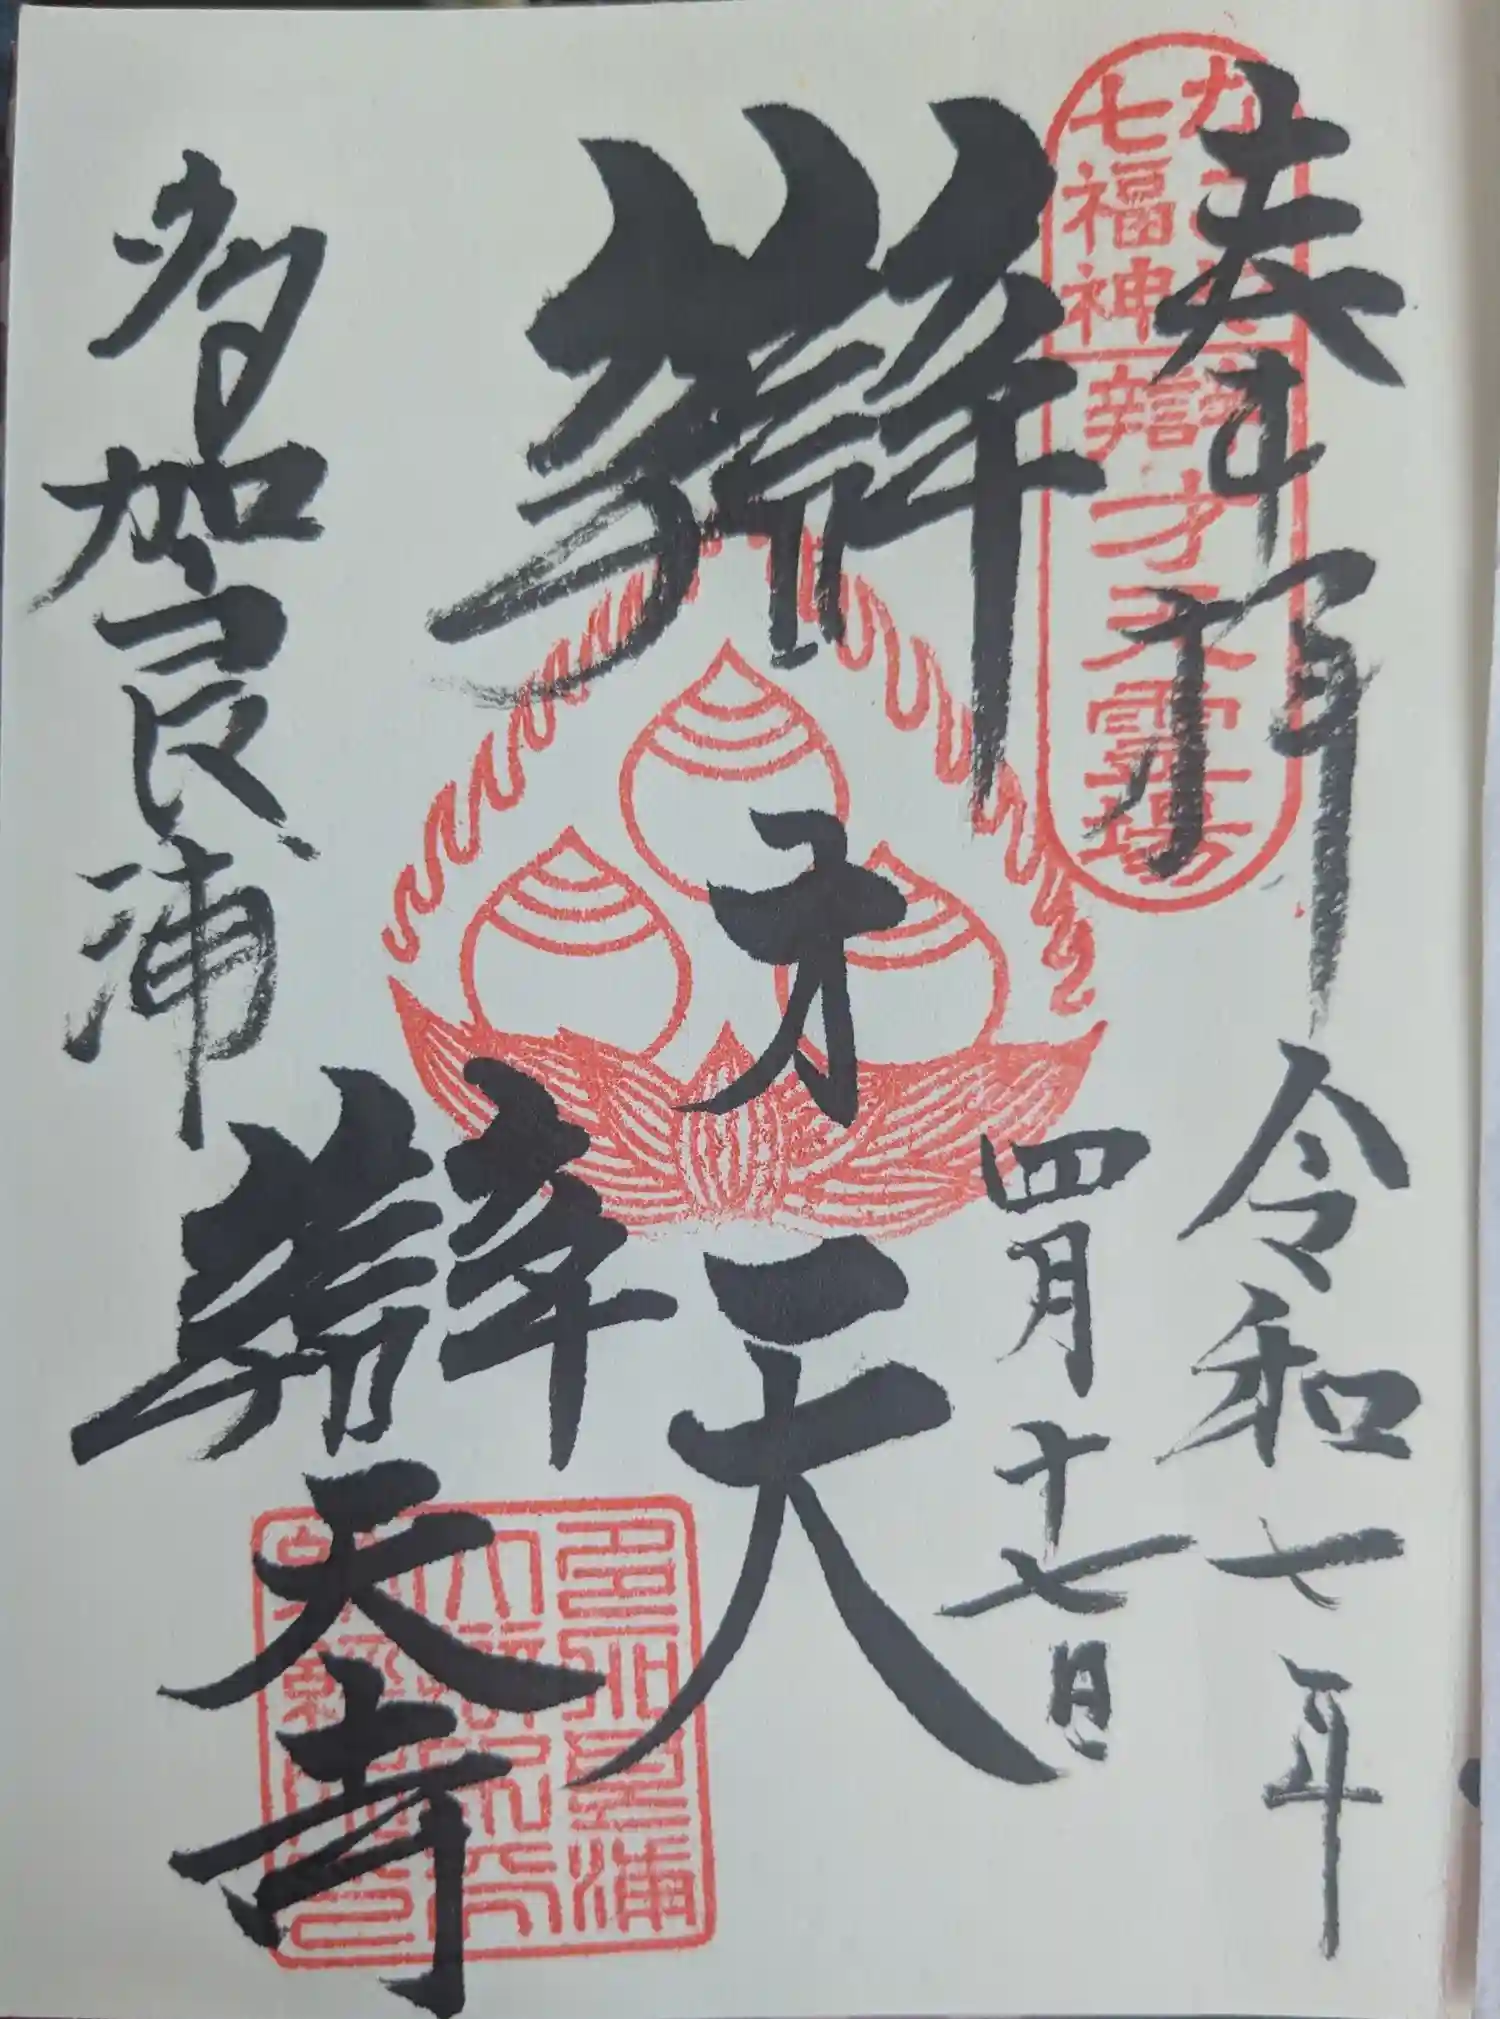 奉拝
令和七年
四月十七日
七福神
辯才天霊場
辯才天
多加良浦
辯天寺